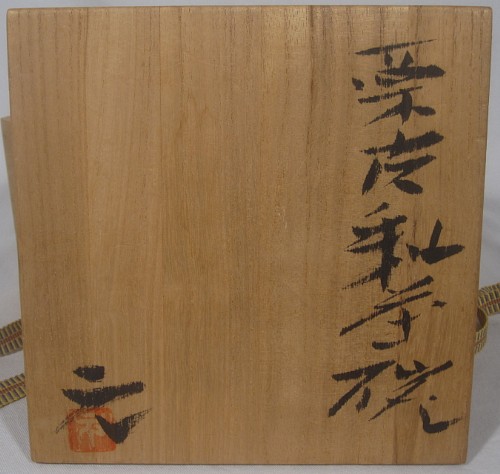 栗皮釉茶碗
元